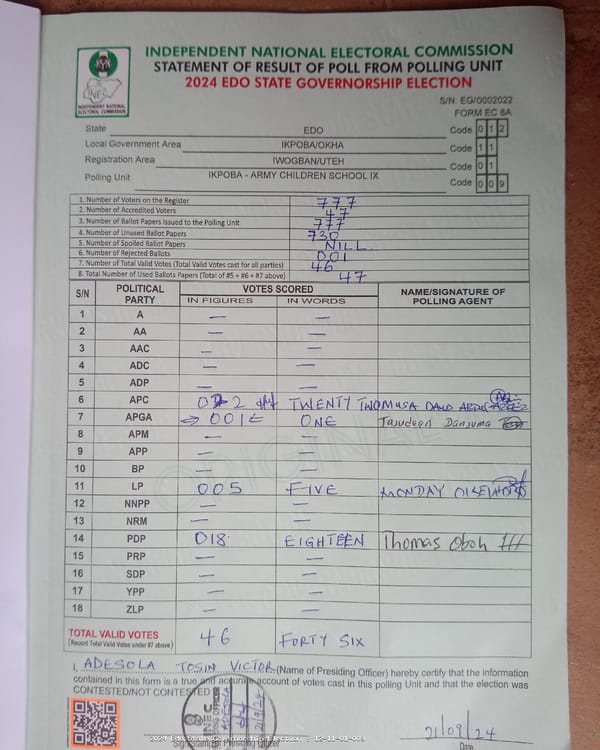 INDEPENDENT NATIONAL ELECTORAL COMMISSION
STATEMENT OF RESULT OF POLL FROM POLLING UNIT
2024 EDO STATE GOVERNORSHIP ELECTION
INEC
INDEPENDENT NATIONAL
ELECTORAL COMMISSION
S/N: EG/0002022
FORM EC 8A
State EDO Code 0 1 2
Local Government Area IKPOBA/OKHA Code 1 1
Registration Area IWOGBAN/UTEH Code 0 1
Polling Unit IKPOBA - ARMY CHILDREN SCHOOL IX Code 0 0 9
1. Number of Voters on the Register 777
2. Number of Accredited Voters 47
3. Number of Ballot Papers Issued to the Polling Unit 777
4. Number of Unused Ballot Papers 730
5. Number of Spoiled Ballot Papers NILL
6. Number of Rejected Ballots 001
7. Number of Total Valid Votes (Total Valid Votes cast for all parties) 46
8. Total Number of Used Ballots Papers (Total of #5 + #6 + #7 above) 47
S/N POLITICAL PARTY VOTES SCORED NAME/SIGNATURE OF POLLING AGENT
IN FIGURES IN WORDS
1 A — —
2 AA — —
3 AAC — —
4 ADC — —
5 ADP — —
6 APC 022 TWENTY TWO MUSA
7 APGA 001 ONE Tajudeen Danjuma
8 APM — —
9 APP — —
10 BP — —
11 LP 005 FIVE MONDAY
12 NNPP — —
13 NRM — —
14 PDP 018 EIGHTEEN Thomas Oboh
15 PRP — —
16 SDP — —
17 YPP — —
18 ZLP — —
TOTAL VALID VOTES 46 FORTY SIX
(Record Total Valid Votes under #7 above)
I, ADESOLA TOSIN VICTOR (Name of Presiding Officer) hereby certify that the information
contained in this form is a true and accurate account of votes cast in this polling Unit and that the election was
CONTESTED/NOT CONTESTED
INEC
21/9/24
21/09/24
Signature of Presiding Officer Date